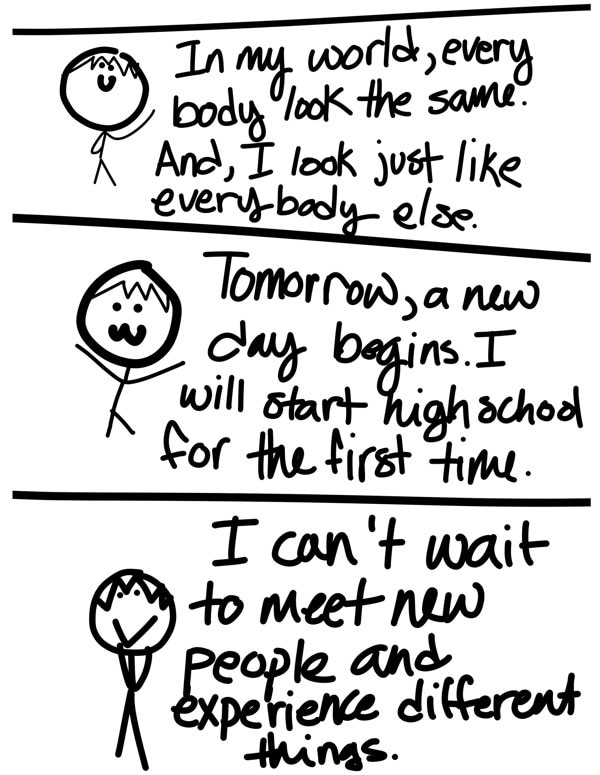 In my world, every
body look the same.
And, I look just like
everybody else.
Tomorrow, a new
day begins. I
will start high school
for the first time.
I can't wait
to meet new
people and
experience different
things.